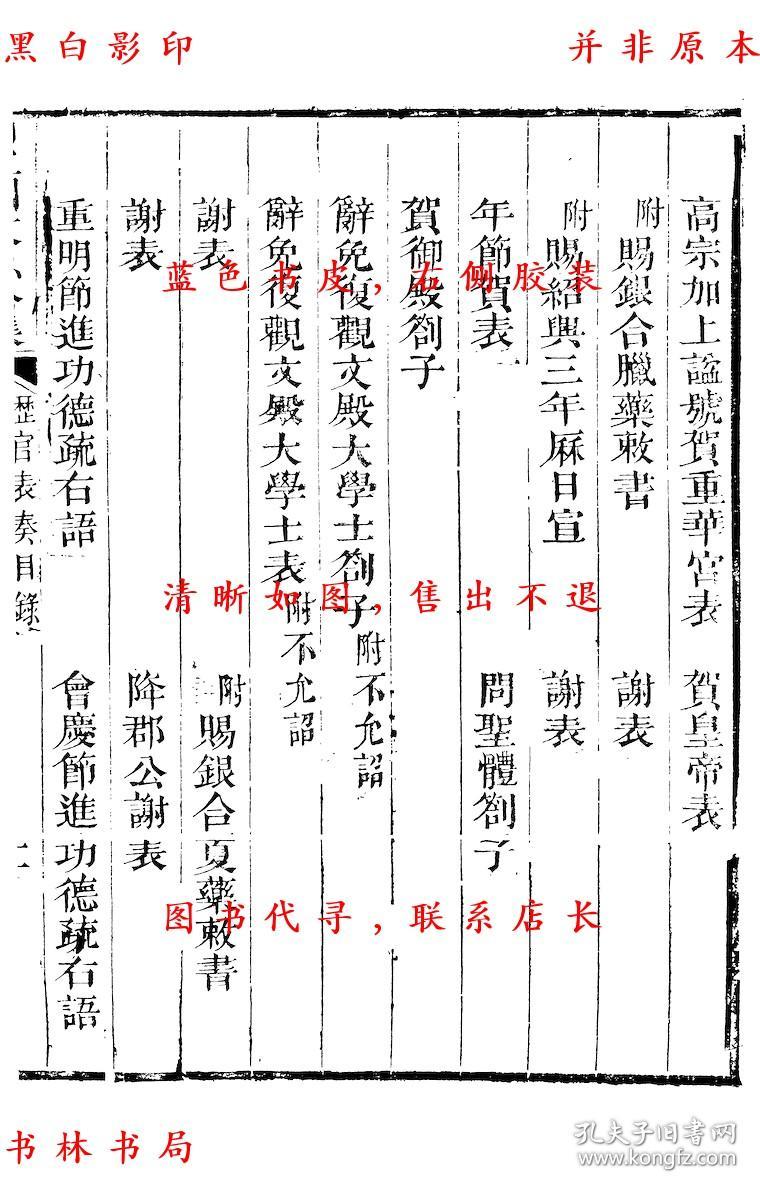 黑白影印
并非原本
高宗加上謚號賀重華宮表 賀皇帝表
附賜銀合臘藥敕書 謝表
附賜紹興三年厤日宣 謝表
年節賀表 問聖體劄子
賀御殿劄子
辭免復觀文殿大學士劄子附不允詔
辭免復觀文殿大學士表附不允詔
謝表 附賜銀合夏藥敕書
謝表 降郡公謝表
重明節進功德疏右語 會慶節進功德疏右語
歷官表奏目錄
蓝色书皮,右侧胶装
清晰如图,售出不退
图书代寻,联系店长
书林书局
孔夫子旧书网
www.kongfz.com